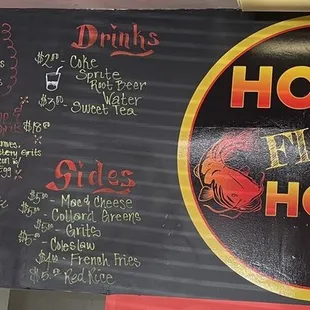 Drinks
$2.00 - Coke
Sprite
Root Beer
Water
$3.00 - Sweet Tea
Grits
$18.00
Sides
$5.00 - Mac & Cheese
- Collard Greens
$5.00 - Grits
$5.00 - Coleslaw
$4.00 - French Fries
$5.00 - Red Rice
HO
FI
HO